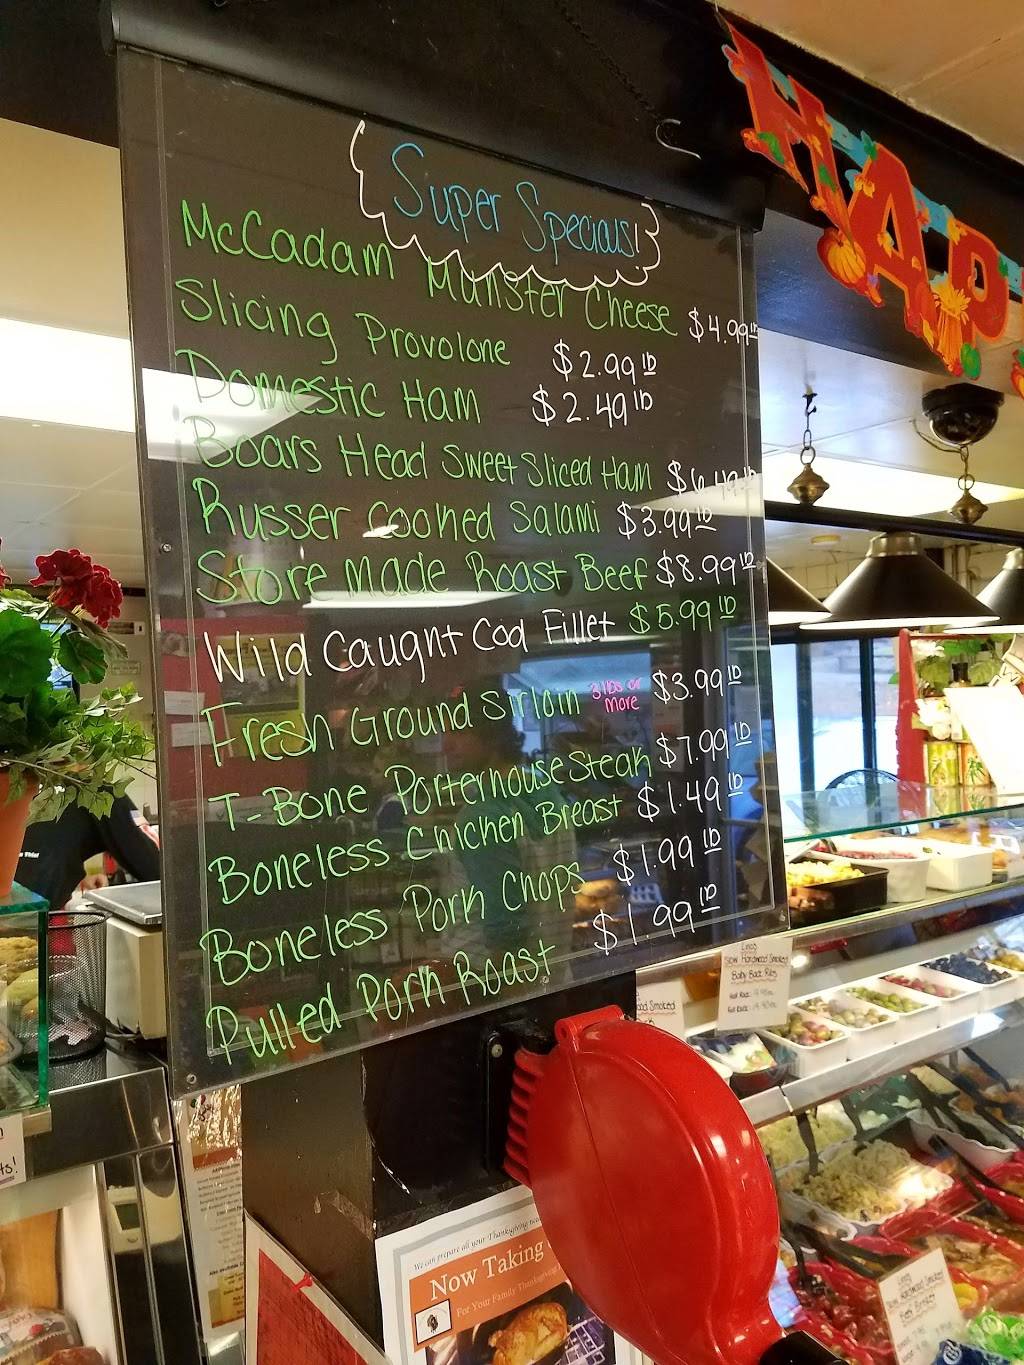 Super Specials!
McCadam Munster Cheese $4.99 lb
Slicing Provolone $2.99 lb
Domestic Ham $2.49 lb
Boars Head Sweet Sliced Ham $6.49 lb
Russer Cooked Salami $3.99 lb
Store Made Roast Beef $8.99 lb
Wild Caught Cod Fillet $5.99 lb
Fresh Ground Sirloin 3 lbs or more $3.99 lb
T-Bone Porterhouse Steak $7.99 lb
Boneless Chicken Breast $1.49 lb
Boneless Pork Chops $1.99 lb
Pulled Pork Roast $1.99 lb
HAP
Slow Hardwood Smoked
Baby Back Ribs
Smoked
We can prepare all your Thanksgiving
Now Taking
For Your Family Thanksgiving